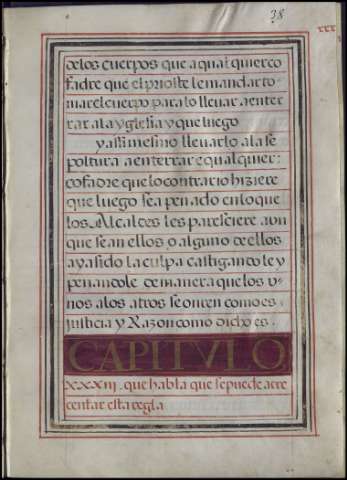 38
xxx
delos cuerpos que a qual quier co
fadre que el prioste le mandar to-
mar el cuerpo para lo lleuar a enter
rar ala yglesia y que luego
y assi mesmo lleuarlo ala se
poltura a enterrar e qual quier:
cofadre que lo contrario hiziere
que luego sea penado en lo que
los Alcaldes les paresciere aun
que sean ellos o alguno de ellos
aya sido la culpa castigandole y
penandole de manera que los v-
nos a los otros se onrren como es.
justicia y Razon como dicho es.
CAPITVLO
XXXIIJ. que habla que se puede acre
centar esta regla